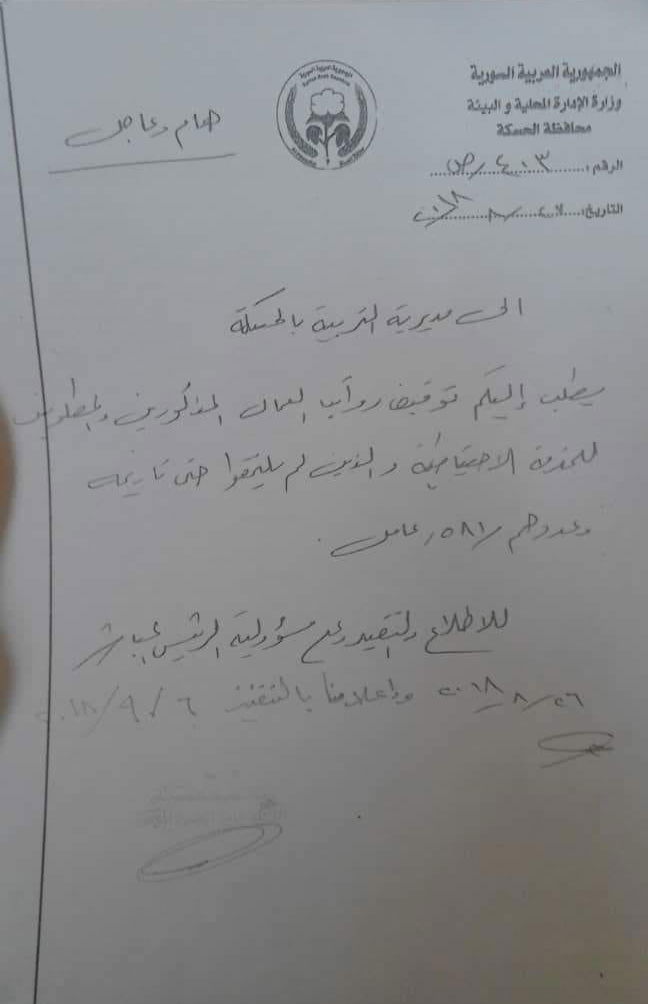 الجمهورية العربية السورية
وزارة الإدارة المحلية و البيئة
محافظة الحسكة
الرقم: ٤٠٣ /ص
التاريخ: ٨ / ٢٠١٨
هام وعاجل
الى مديرية التربية بالحسكة
يطلب إليكم توقيف رواتب العمال المذكورين والمطلوبين
للخدمة الاحتياطية والذين لم يلتحقوا حتى تاريخه
وعددهم /٥٨١/ عامل .
للاطلاع والتقيد وعلى مسؤولية الرئيس المباشر
٢٦/ ٨/ ٢٠١٨ وإعلامنا بالتنفيذ ٦/ ٩/ ٢٠١٨